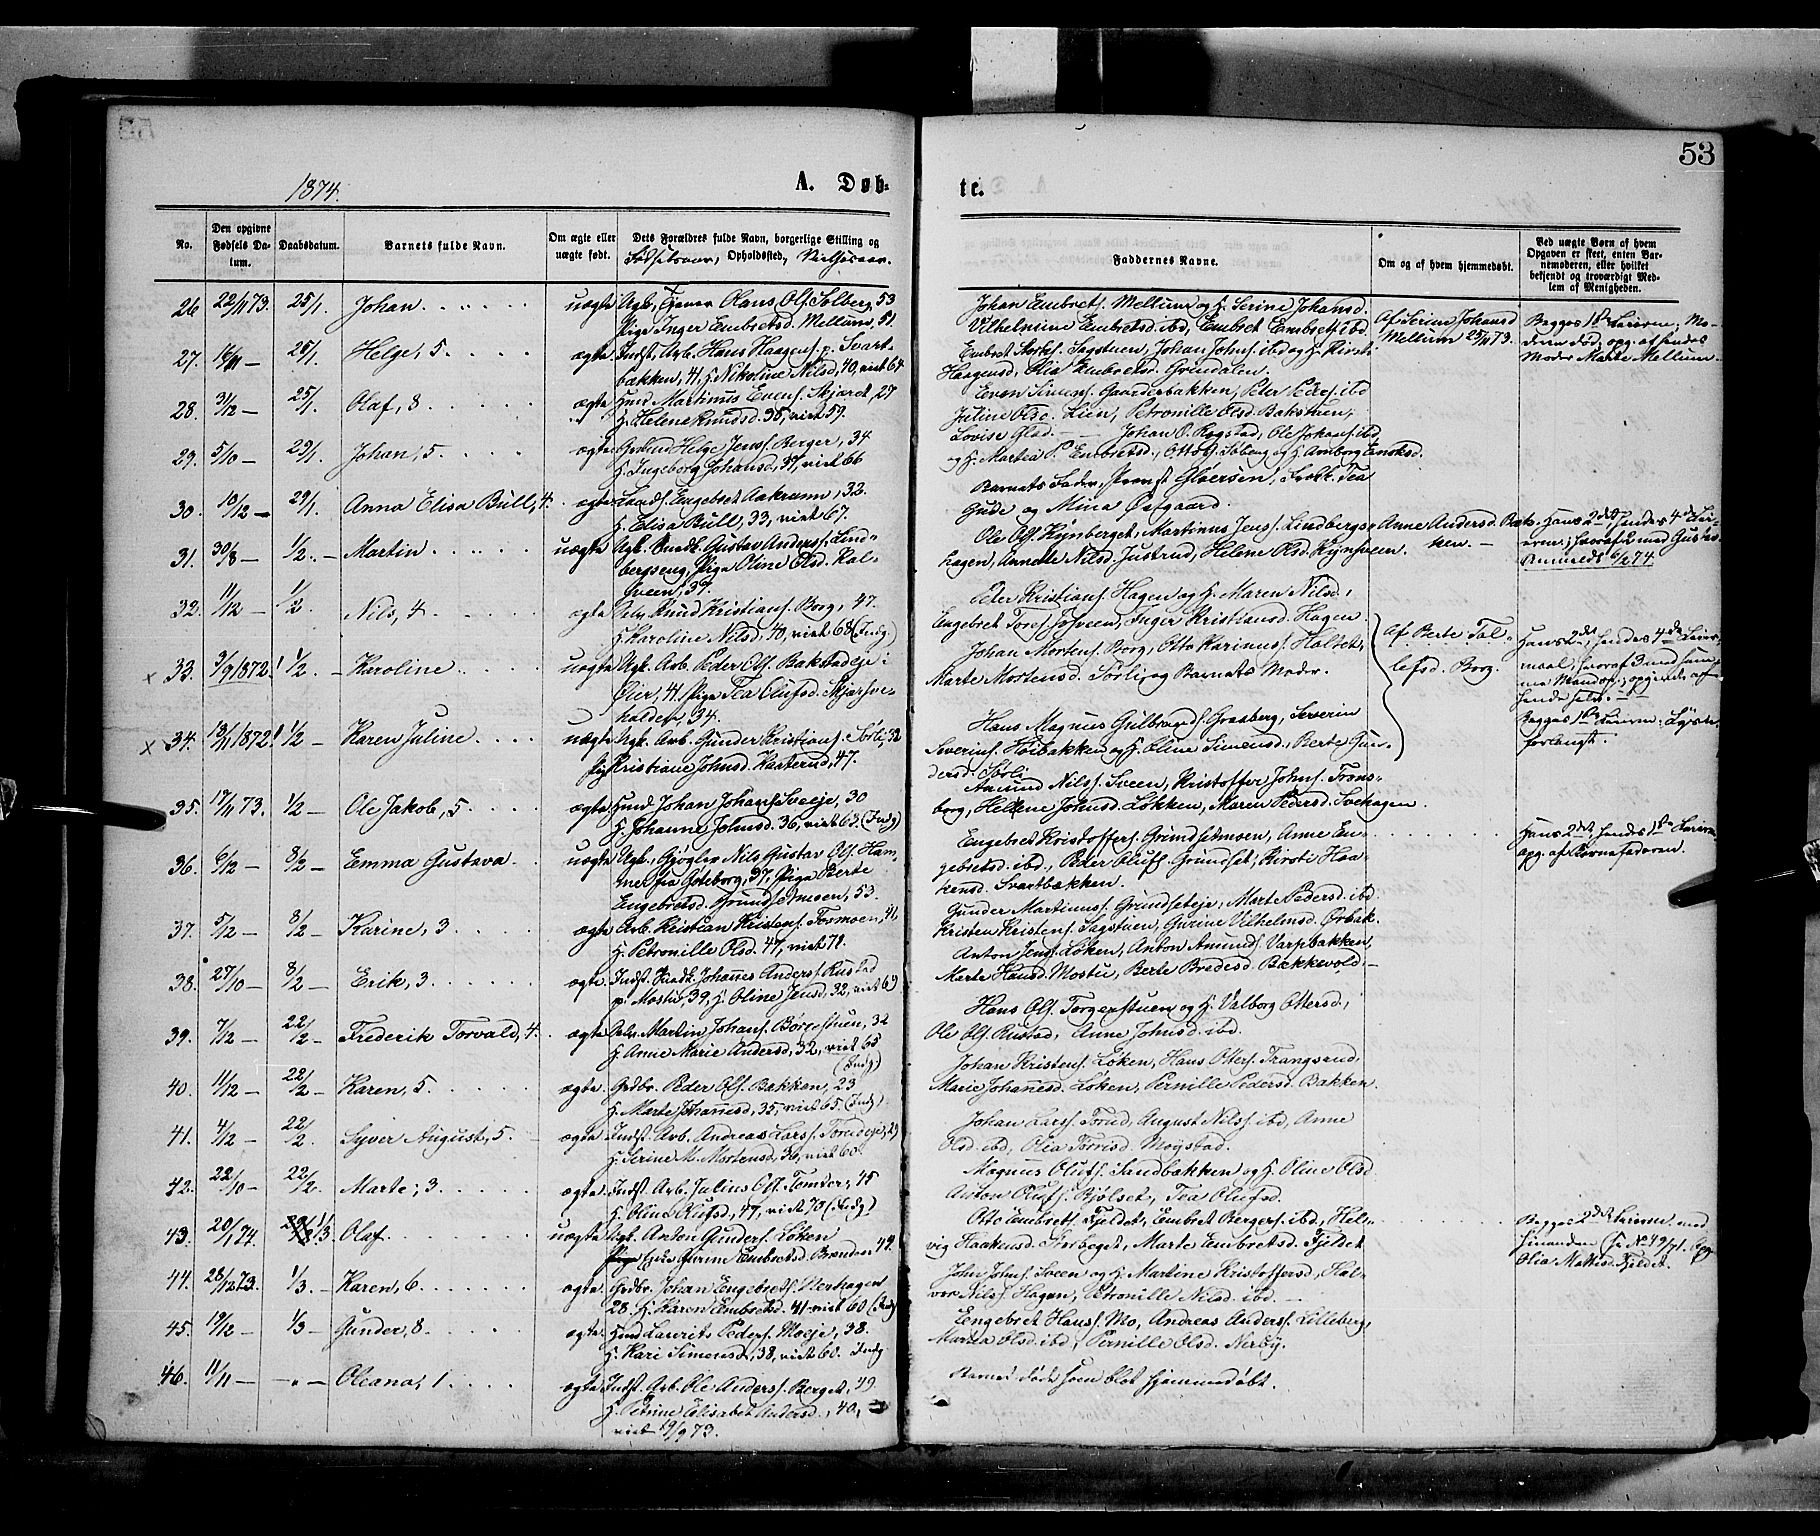 53
1874.
A. Døb-
te.
No.
Den opgivne Fødsels Datum.
Daabsdatum.
Barnets fulde Navn.
Om ægte eller uægte født.
Dets Forældres fulde Navn, borgerlige Stilling og
Fødselsaar, Opholdssted, Vielsesaar.
Faddernes Navne.
Om og af hvem hjemmedøbt.
Ved uægte Børn af hvem Opgaven er skeet, enten Barnemoderen, eller hvilket bekjendt og troværdigt Medlem af Menigheden.
26 22/11 73. 25/1. Johan uægte Ugk., Tjener Olaus Ols. Solberg, 53
Pige Inger Embretsd. Mellum, 51.
Johan Embrets. Mellum og H. Serine Johansd.
Vilhelmine Embretsd. ibd, Embret Embrets. ibd.
Af Serine Johansd
Mellum 25/11 73.
Begges 1ste Leierm; Mo-
deren død, opg. af hendes
Moder Marte Mellum.
27. 16/11 — 25/1. Helge, 5. ægte Indst. Arb. Hans Haagens. p. Svart-
bækken, 41, H. Nikoline Nilsd, 40, viet 64
Embret Sagstuen, Johan Johns. ibd og H. Kirsti
Haagensd, Olia Embretsd. Grindalen.
28. 31/12 — 25/1. Olaf, 8 ægte Husm. Martinus Evens. Skjæret, 27
H. Helene Knudsd. 36, viet 57.
Even Simens. Gaarderbakken, Peter Peders. ibd
Juline Olsd. Lien, Petronille Olsd. Bakstuen,
29. 5/10 — 29/1. Johan, 5. ægte Helge Jens. Berger, 34
H. Ingeborg Johansd, 39, viet 66
Lovise Glad. — Johan O. Rogstad, Ole Johans. ibd
og H. Martea P. Embretsd.,
30. 10/12 — 29/1. Anna Elisa Bull, 4. ægte Engebret Aakrann, 32.
H. Elisa Bull, 33, viet 67.
Barnets Fader, Provst Gløersen, Frøk. Tea
Gude og Mina Østgaard.
31. 30/8 — 1/2. — Martin uægte Ugk. Gustav Anders. Lind-
bergseng, Pige Oline Olsd. Kal-
sveen, 39.
Ole Ols. Kynberget, Martinus Jens. Lindbergs-
hagen, Annette Nilsd. Justrud, Helene Olsd. Kynsveen.
Anne Andersd. Bæk-
ken. —
Hans 2det, hendes 4de Lei-
erm.; hvoraf 2 med Gustav
Anmeldt 6/2 74.
32. 11/12 — 1/2. Nils, 4 ægte Selv. Knud Kristians. Borg, 47.
H. Karoline Nilsd, 40, viet 68 (Indg.)
Peder Kristians. Hagen og H. Maren Nilsd.,
Engebret Tores. Josveen, Inger Kristiansd. Hagen.
x 33. 3/9 1872! 1/2. — Karoline uægte Ugk. Arb. Peder Ols. Bakstadeje i
Øier, 41 Pige Tea Olufsd. Skjærsve-
halden, 34.
Johan Mortens. Borg, Otto Karinus Holtet,
Marte Mortensd. Sørli, og Barnets Moder.
Af Berte Tol-
lefsd. Borg.
Hans 2det, hendes 4de Leier-
maal, hvoraf 3 med sam-
me Mandsp.; opgivet af
hende selv. —
x 34. 13/11 1872! 1/2 — Karen Juline uægte Ugk. Arb. Gunder Kristians. Sørli, 32
Pige Kristiane Johnsd. Kasterud, 47.
Hans Magnus Gulbrands. Grasberg, Serverin
Severins. Høibakken og H. Oline Simensd, Berte Gun-
dersd. Sørli
Begges 1ste Leierm:
forlangt.
35. 17/11 73. 1/2 — Ole Jakob, 5 ægte Husm. Johan Johans. Sveeje, 30
H. Johanne Johnsd. 36, viet 63. (Indg)
Amund Nils. Sveen, Kristoffer Johns. Frøns-
borg, Hellene Johnsd. Løkken, Maren Pedersd. Svehagen.
36. 6/12 — 8/2 — Emma Gustava uægte Ugk., Gjøgler Nils Gustav Ols. Ham-
mer fra Gøteborg, 37, Pige Berte
Engebretsd. Grundsetmoen, 53.
Engebret Kristoffers. Grundsetmoen, Anne En-
gebretsd. ibd., Peder Olufs. Grundset, Kirsti Haa-
kensd. Svartbækken.
Hans 2det, hendes 1ste Leierm.
opg. af Barnefaderen.
37. 5/12 — 8/2 — Karine, 3 ægte Arb. Kristian Kristens. Tormoen, 41,
H. Petronille Olsd. 47, viet 72.
Gunder Martinus. Grundseteje, Marte Pedersd. ibd.
Kristen Kristens. Sagstuen, Gurine Vilhelmsd. Ørbæk.
38. 27/10 — 8/2 — Erik, 3 ægte Indst. Johannes Anders. Rustad
p. Mostu, 39, H. Oline Jensd, 32, viet 69
Anton Jens. Løken, Anton Amunds. Varpbakken,
Marte Hansd. Mostu, Berte Bredesd. Bækkevold. —
39. 7/12 — 22/2 — Frederik Torvald, 4. ægte Selv. Martin Johans. Børgestuen, 32
H. Anne Marie Andersd, 32, viet 65
(Indg)
Hans Ols. Torgerstuen og H. Valborg Ottersd.,
Ole Ols. Rustad, Anne Johnsd. ibd.
40. 11/12 — 22/2 — Karen, 5 ægte Grdbr. Peder Ols. Bakken, 23
H. Marte Johannesd, 35, viet 65. (Indg)
Johan Kristens. Løken, Hans Otters. Trangsrud,
Marie Johannesd. Løken, Pernille Pedersd. Bakken.
41. 4/12 — 22/2. Syver August, 5. ægte Indst. Arb. Andreas Lars. Torudeje, 29
H. Serine M. Mortensd, 36, viet 60.
Johan Lars. Torud, August Nils. ibd, Anne
Olsd. ibd, Olia Torrisd. Møystad.
42. 22/10 — 22/2. Marte, 3 ægte Indst. Arb. Julius Ols. Tomter, 45
H. Oline Olufsd., 47, viet 70 (Indg)
Magnus Olufs. Sandbakken og H. Oline Olsd.
Anton Olufs. Bjølset, Tea Olufsd.
43. 20/1 74. 1/3 Olaf uægte Ugk. Anton Gunders. Løken
Gurine Embretsd. Brænden 49.
Otto Embrets. Fjeldet, Embret Bergers. ibd, Hel-
vig Haakensd. Storberget, Marte Embretsd. Fjeldet
Begges 2det Leierm. med
hinanden (fr. No 49/71. Opg.
Olia Mathisd. Fjeldet.
44. 28/12 73. 1/3. — Karen, 6 ægte Grdbr. Johan Engebrets. Nordhagen
28. H. Karen Embretsd. 41 viet 60 (Indg)
John Johns. Sveen og H. Martine Kristoffersd, Hal-
vor Nils. Hagen, Petronille Nilsd. ibd. —
45. 19/12 — 1/3 — Gunder, 8 ægte Husm. Laurits Peders. Moeje, 38.
H. Kari Simensd, 38, viet 60. Indg
Engebret Hans. Mo, Andreas Anders. Lilleberg,
Martea Olsd. ibd, Pernille Olsd. Nerby.
46. 11/11 — — Oleana, 1 ægte Indst. Arb. Ole Anders. Berget, 49
H. Petrine Elisabet Andersd., 40,
viet 19/9 73.
Barnet døde som blot hjemmedøbt.